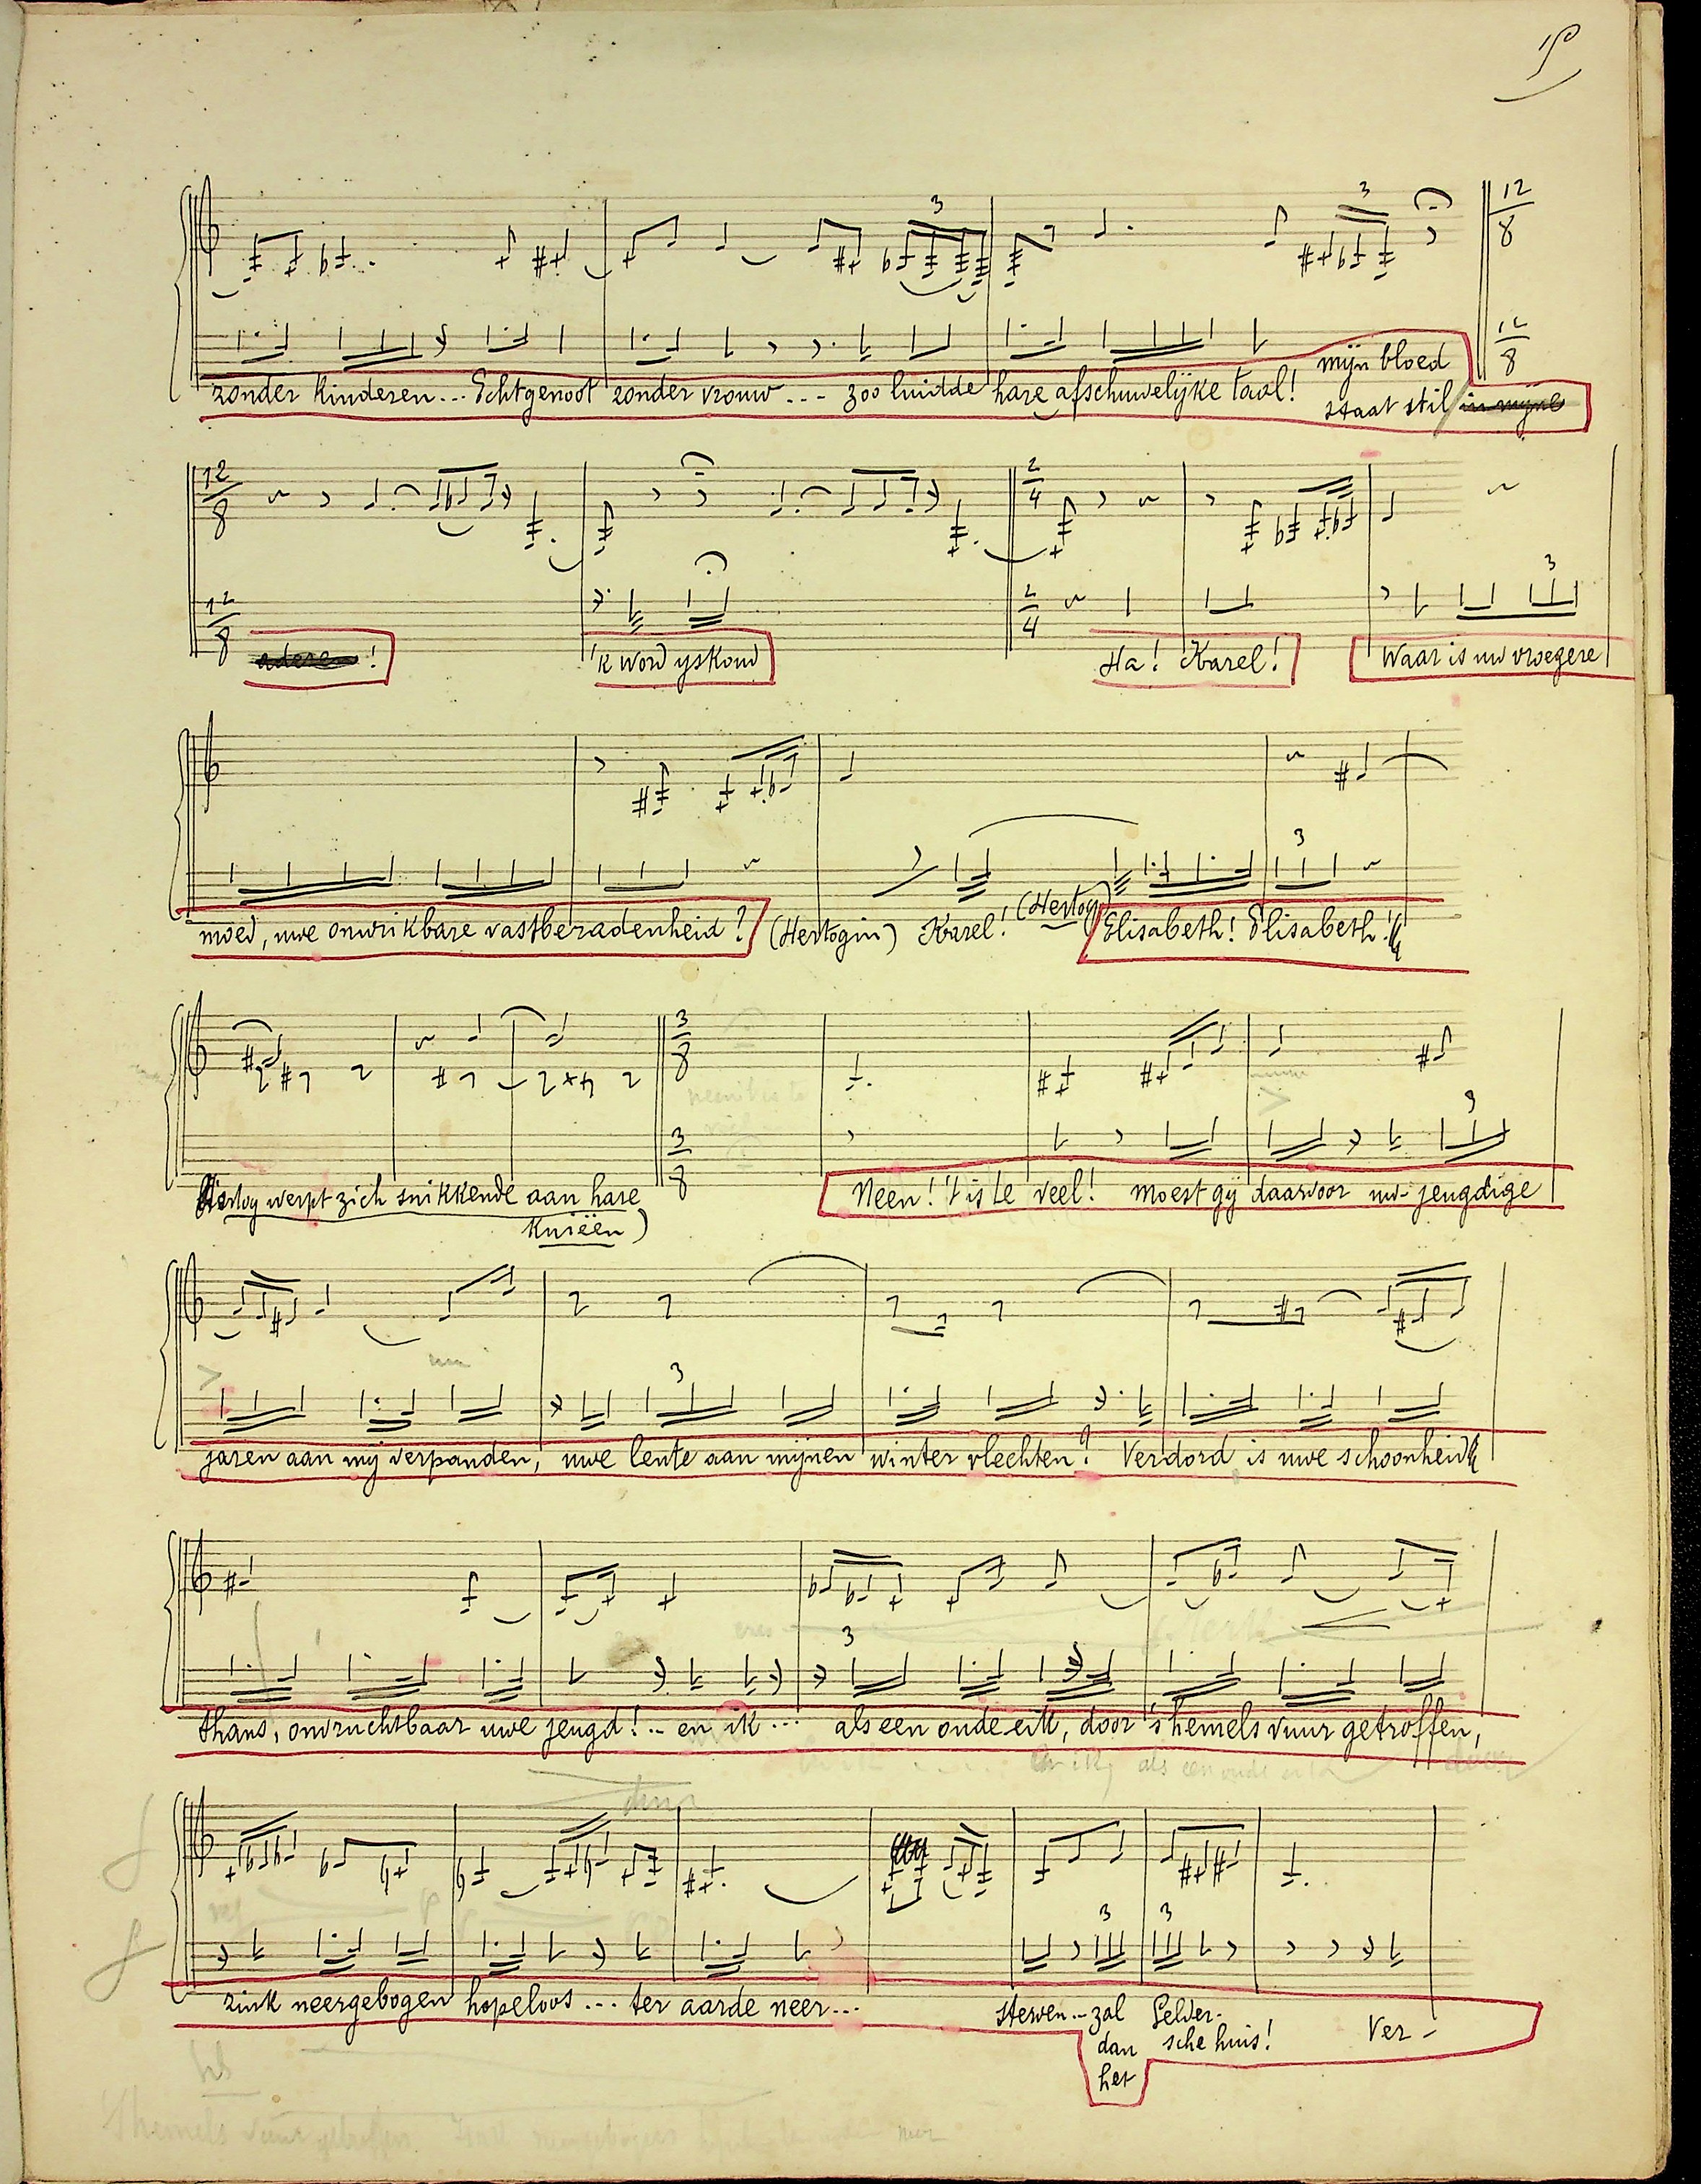 zonder kinderen... Echtgenoot zonder vrouw... zoo luidde hare afschuwelijke taal! mijn bloed
staat stil in mijne
aderen!
'k word yskoud
Ha! Karel!
Waar is uw vroegere
moed, uwe onwrikbare vastberadenheid? (Hertogin) Karel! (Hertog) Elisabeth! Elisabeth!
Hertog werpt zich snikkende aan hare
knieën)
Neen! 't is te veel! moest gij daarvoor uw jeugdige
jaren aan mij verpanden, uwe lente aan mijnen winter vlechten? Verdord is uwe schoonheid
thans, onvruchtbaar uwe jeugd!.. en ik... als een oude eik, door 's hemels vuur getroffen,
en ik, als een oude eik door
zink neergebogen hopeloos... ter aarde neer...
sterven... zal dan het
Gelder-
sche huis!
Ver-